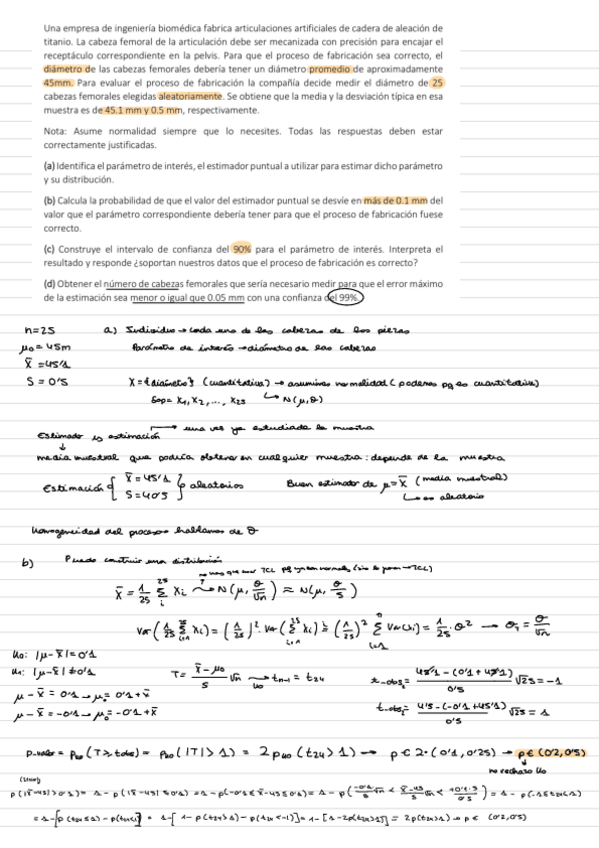 Una empresa de ingeniería biomédica fabrica articulaciones artificiales de cadera de aleación de
titanio. La cabeza femoral de la articulación debe ser mecanizada con precisión para encajar el
receptáculo correspondiente en la pelvis. Para que el proceso de fabricación sea correcto, el
diámetro de las cabezas femorales debería tener un diámetro promedio de aproximadamente
45mm. Para evaluar el proceso de fabricación la compañía decide medir el diámetro de 25
cabezas femorales elegidas aleatoriamente. Se obtiene que la media y la desviación típica en esa
muestra es de 45.1 mm y 0.5 mm, respectivamente.
Nota: Asume normalidad siempre que lo necesites. Todas las respuestas deben estar
correctamente justificadas.
(a) Identifica el parámetro de interés, el estimador puntual a utilizar para estimar dicho parámetro
y su distribución.
(b) Calcula la probabilidad de que el valor del estimador puntual se desvíe en más de 0.1 mm del
valor que el parámetro correspondiente debería tener para que el proceso de fabricación fuese
correcto.
(c) Construye el intervalo de confianza del 90% para el parámetro de interés. Interpreta el
resultado y responde ¿soportan nuestros datos que el proceso de fabricación es correcto?
(d) Obtener el número de cabezas femorales que sería necesario medir para que el error máximo
de la estimación sea menor o igual que 0.05 mm con una confianza del 99%.
n=25 a) Individuo → cada una de las cabezas de las piezas
μ₀ = 45m Parámetro de interés → diámetro de las cabezas
x̄ = 45'1
S = 0'5 X = {diámetro} (cuantitativa) → asumimos normalidad (podemos pq es cuantitativa)
Sop = X₁, X₂, ..., X₂₅ → N(μ, σ)
una vez ya estudiada la muestra
Estimador is estimación
media muestral que podría obtener en cualquier muestra: depende de la muestra
Estimación { x̄ = 45'1 } aleatorios Buen estimador de μ = x̄ (media muestral)
S = 40'5 → es aleatorio
Homogeneidad del proceso hablamos de σ
b) Puedo construir una distribución
x̄ = 1/25 Σ xi → N(μ, σ/√n) ≈ N(μ, σ/5)
Var(1/25 Σ xi) = (1/25)² · Var(Σ xi) = (1/25)² Σ Var(xi) = 1/25 · σ² → σ = σ/√n
H₀: |μ-x̄| = 0'1
H₁: |μ-x̄| ≠ 0'1 T = (x̄ - μ₀)/S √n → tn-1 = t24 t-obs₁ = (45'1 - (0'1 + 45'1))/0'5 √25 = -1
μ - x̄ = 0'1 → μ₀ = 0'1 + x̄
μ - x̄ = -0'1 → μ₀ = -0'1 + x̄ t-obs₂ = (45 - (-0'1 + 45'1))/0'5 √25 = 1
p-valor = pH₀(T ≥ tobs) = pH₀(|T| > 1) = 2pH₀(t24 > 1) → p ∈ 2·(0'1, 0'25) → p ∈ (0'2, 0'5)
no rechazo H₀
p(|x̄-45| > 0'1) = 1 - p(|x̄-45| ≤ 0'1) = 1 - p(-0'1 ≤ x̄-45 ≤ 0'1) = 1 - p(-0'1/S √n < (x̄-45)/S √n < +0'1·5/0'5) = 1 - p(-1 ≤ t24 ≤ 1)
= 1 - [p(t24 ≤ 1) - p(t24 ≤ -1)] = 1 - [1 - p(t24 > 1) - p(t24 < -1)] = 1 - [1 - 2p(t24 > 1)] = 2p(t24 > 1) → p ∈ (0'2, 0'5)